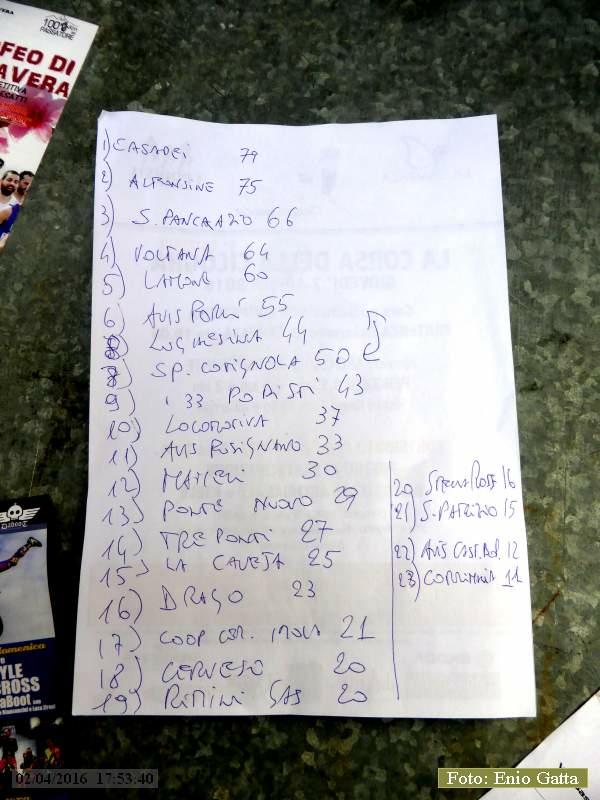 100
PASSATORE
FEO DI
AVERA
1) CASADEI 79
2) ALFONSINE 75
3) S. PANCRAZIO 66
4) VOLTANA 64
5) LAMONE 60
6) AVIS FORLÌ 55
LUGHESINA 44
8) SP. COTIGNOLA 50
9) I 33 PODISTI 43
10) LOCOMOTIVA 37
11) AVIS FUSIGNANO 33
12) 30
13) PONTE NUOVO 29
14) TRE PONTI 27
15) LA CAVEJA 25
16) DRAGO 23
17) COOP CER. IMOLA 21
18) CERVESE 20
19) RIMINI 20
20 16
21) S. PATRIZIO 15
22) AVIS CAST. BOL. 12
23) 11
omenica
YLE
CROSS
aBoot
02/04/2016 17:53:40
Foto: Enio Gatta